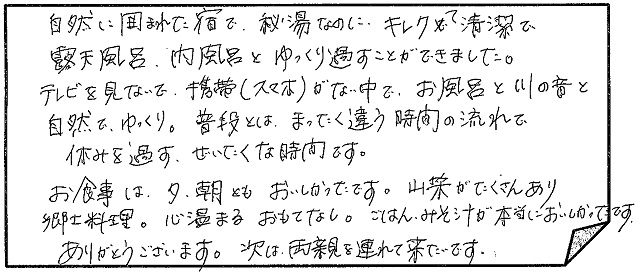 自然に囲まれた宿で、秘湯なのに、キレイで清潔で
露天風呂、内風呂とゆっくり過すことができました。
テレビを見ないで、携帯(スマホ)がない中で、お風呂と川の音と
自然で、ゆっくり。普段とは、まったく違う時間の流れで
休みを過す、ぜいたくな時間です。
お食事は、夕、朝ともおいしかったです。山菜がたくさんあり
郷土料理。心温まるおもてなし。ごはん、みそ汁が本当においしかったです。
ありがとうございます。次は、両親を連れて来たいです。